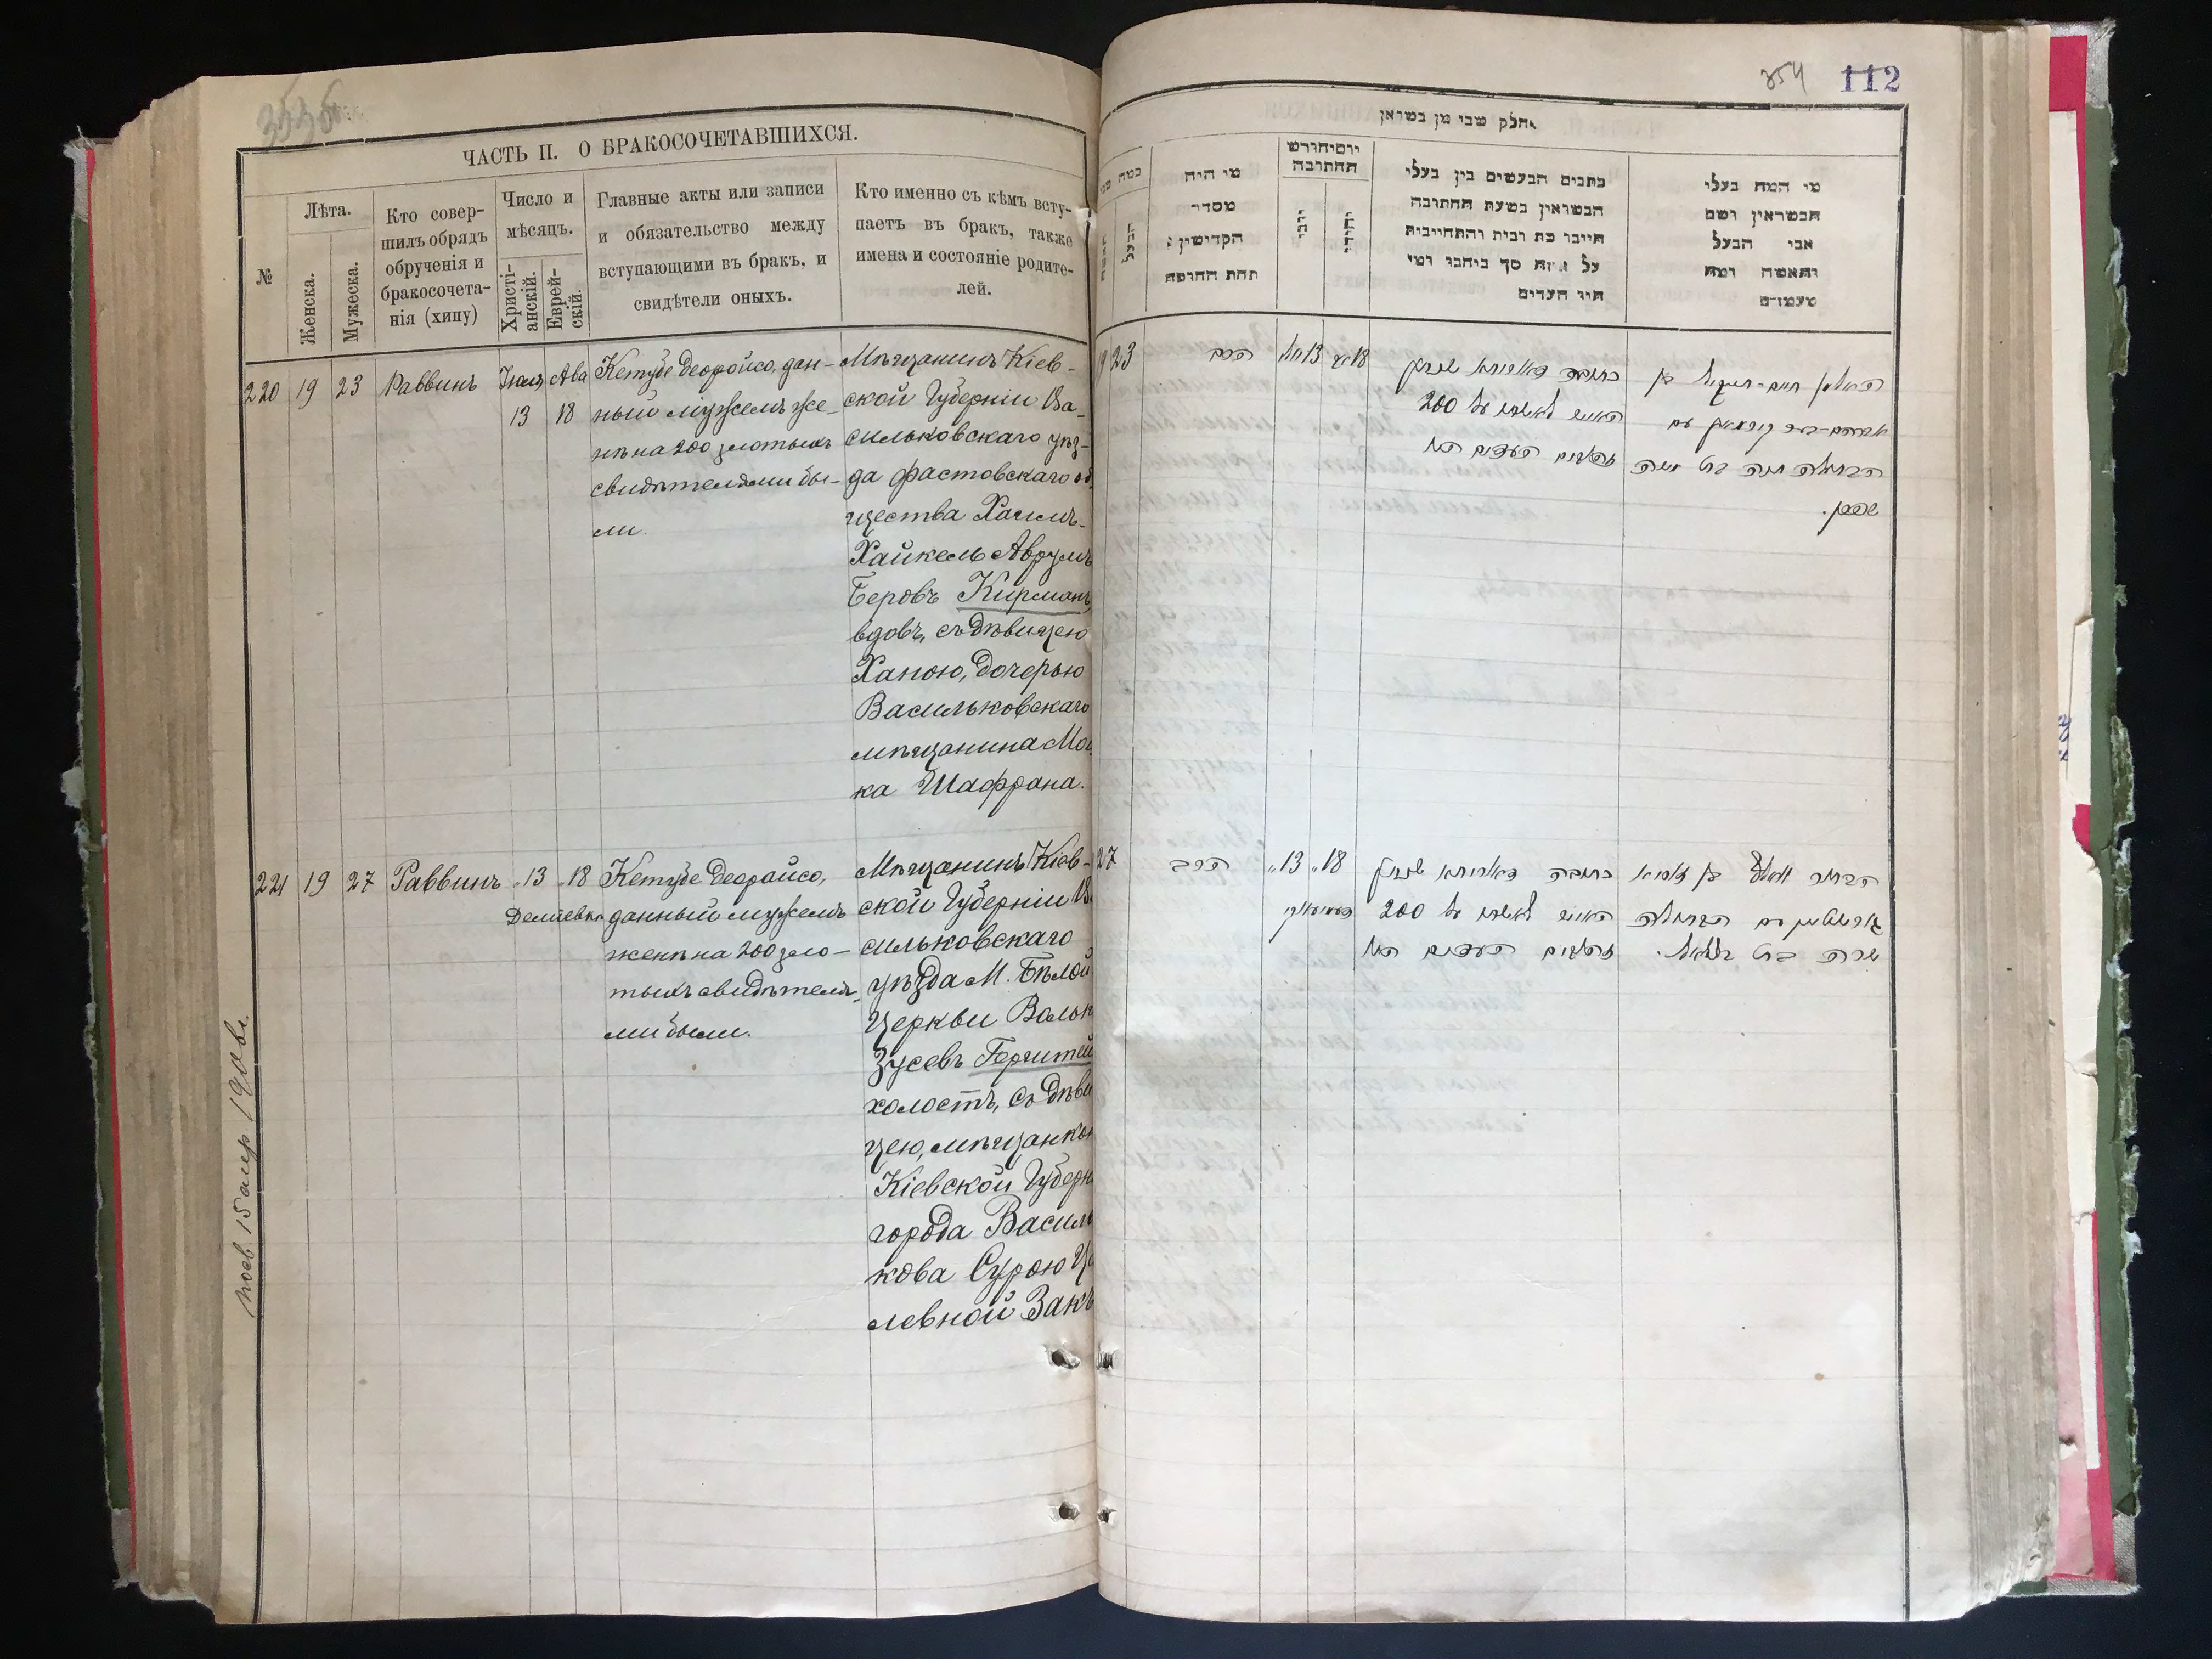 ЧАСТЬ II. О БРАКОСОЧЕТАВШИХСЯ.
№
Лѣта.
Женска.
Мужеска.
Кто совер-
шилъ обрядъ
обрученія и
бракосочета-
нія (хипу)
Число и
мѣсяцъ.
Христі-
анскій.
Еврей-
скій.
Главные акты или записи
и обязательство между
вступающими въ бракъ, и
свидѣтели оныхъ.
Кто именно съ кѣмъ всту-
паетъ въ бракъ, также
имена и состояніе родите-
лей.
220
19
23
Раввинъ
Іюля
13
Ава
18
Кетубе Деорайсо, дан-
ный мужемъ же-
нѣ на 200 злотыхъ
свидѣтелями бы-
ли.
Мѣщанинъ Кіев-
ской Губерніи Ва-
сильковскаго уѣз-
да Фастовскаго об
щества Хаимъ-
Хайкель Аврумъ
Беровъ Кирманъ,
вдовъ, съ дѣвицею
Ханою, дочерью
Васильковскаго
мѣщанина Мош
ка Шафрана.
221
19
27
Раввинъ
„13
„18
Демиевка
Кетубе Деорайсо,
данный мужемъ
женѣ на 200 зло-
тыхъ свидѣтеля-
ми были.
Мѣщанинъ Кіев-
ской Губерніи Ва
сильковскаго
уѣзда М. Бѣлой
Церкви Вольк
Зусевъ Герштей
холостъ, съ дѣви
цею, мѣщанкой
Кіевской Губерн
города Василь
кова Сурою
левной Закъ
112
354
חלק שני מן בשואין
כמה שני
הבעל
מי היה
מסדר
הקדישין
תחת החופה
יום וחודש
החתובה
כתבים הנעשים בין בעלי
הנשואין בשעת החתובה
חייבו כת ובית והתחייבות
על איזה סך ניתנו ומי
היו העדים
מי המה בעלי
הנשואין ושם
אבי הבעל
והאשה ומה
מעמדם
23
הרב
13
18
כתובה דאורייתא שנתן
האיש לאשתו על 200
זהובים העדים היו
אברהם-בער קירמאן עם
הבתולה חנה בת משה
שפרן.
27
הרב
„13
„18
כתובה דאורייתא שנתן
האיש לאשתו על 200
זהובים העדים היו
גערשטיין עם הבתולה